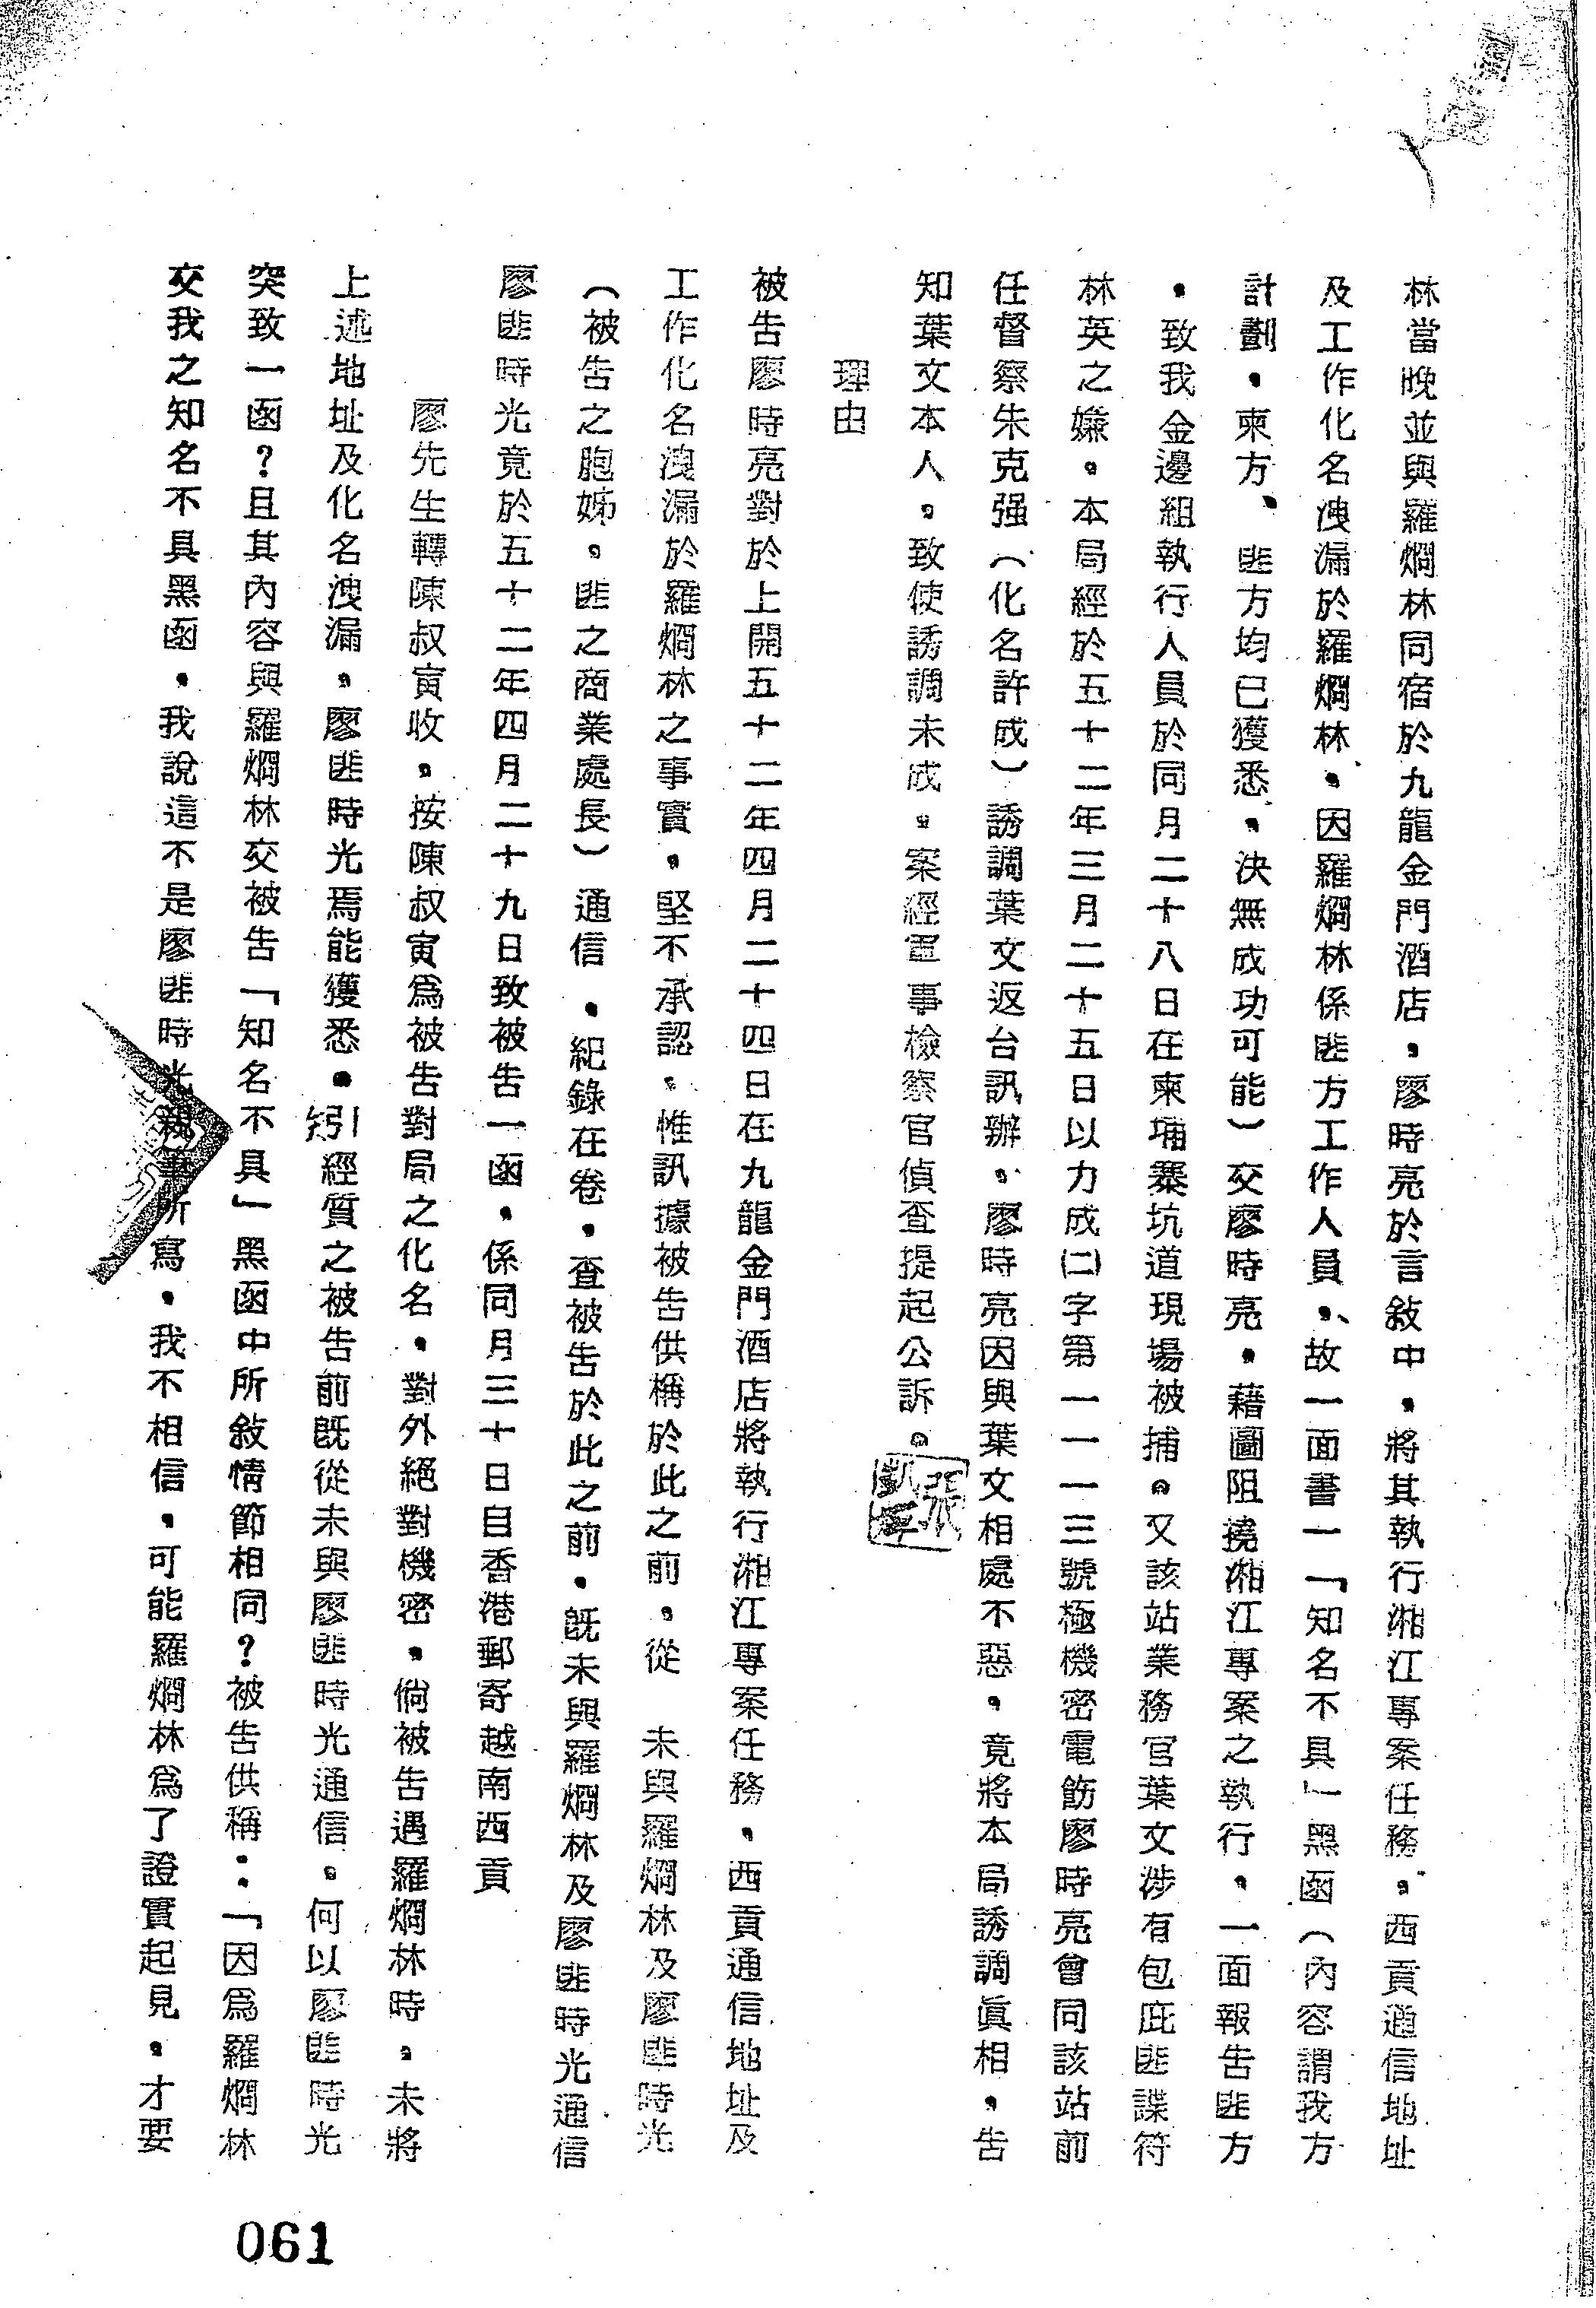 林當晚並與羅烱林同宿於九龍金門酒店，廖時亮於言敍中，將其執行湘江專案任務，西貢通信地址
及工作化名洩漏於羅烱林。因羅烱林係匪方工作人員，故一面書一「知名不具」黑函（內容謂我方
計劃，柬方、匪方均已獲悉，決無成功可能）交廖時亮，藉圖阻撓湘江專案之執行，一面報告匪方
，致我金邊組執行人員於同月二十八日在柬埔寨坑道現場被捕。又該站業務官葉文涉有包庇匪諜符
林英之嫌。本局經於五十二年三月二十五日以力成㈡字第一一一三號極機密電飭廖時亮會同該站前
任督察朱克强（化名許成）誘調葉文返台訊辦，廖時亮因與葉文相處不惡，竟將本局誘調眞相，告
知葉文本人，致使誘調未成。案經軍事檢察官偵查提起公訴。
理由
被告廖時亮對於上開五十二年四月二十四日在九龍金門酒店將執行湘江專案任務，西貢通信地址及
工作化名洩漏於羅烱林之事實，堅不承認。惟訊據被告供稱於此之前，從 未與羅烱林及廖匪時光
（被告之胞姊。匪之商業處長）通信，紀錄在卷，查被告於此之前，旣未與羅烱林及廖匪時光通信
廖匪時光竟於五十二年四月二十九日致被告一函，係同月三十日自香港郵寄越南西貢
廖先生轉陳叔寅收。按陳叔寅爲被告對局之化名，對外絕對機密，倘被告遇羅烱林時，未將
上述地址及化名洩漏，廖匪時光焉能獲悉。矧經質之被告前旣從未與廖匪時光通信。何以廖匪時光
突致一函？且其內容與羅烱林交被告「知名不具」黑函中所敍情節相同？被告供稱：「因爲羅烱林
交我之知名不具黑函，我說這不是廖匪時光親筆所寫，我不相信，可能羅烱林爲了證實起見，才要
061